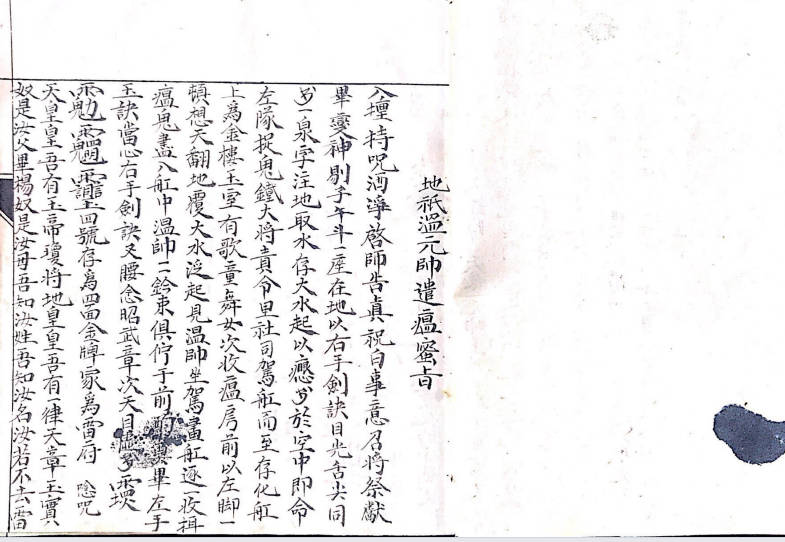 地祇溫元帥遣瘟蜜旨
入壇持咒洒淨啓師告眞祝白事意召將祭獻
畢變神剔子午斗一座在地以右手劍訣目光舌尖同
一泉字注地取水存大水起以於空中即命
左隊捉鬼鐵大將責令里社司駕舡而至存化舡
上為金樓玉室有歌童舞女次收瘟房前以左脚一
頓想天翻地覆大水泛起見温帥坐駕畫舡逐一收捉
瘟鬼盡入舡中溫帥二鈴束俱佇于前畢左手
玉訣當心右手劍訣叉腰念昭武章次天目
四號存為四面金牌家為雷府 唸咒
天皇皇吾有玉帝瓊將地皇皇吾有一律天章玉實
奴是汝父畢楊奴是汝母吾知汝姓吾知汝名汝若不去雷